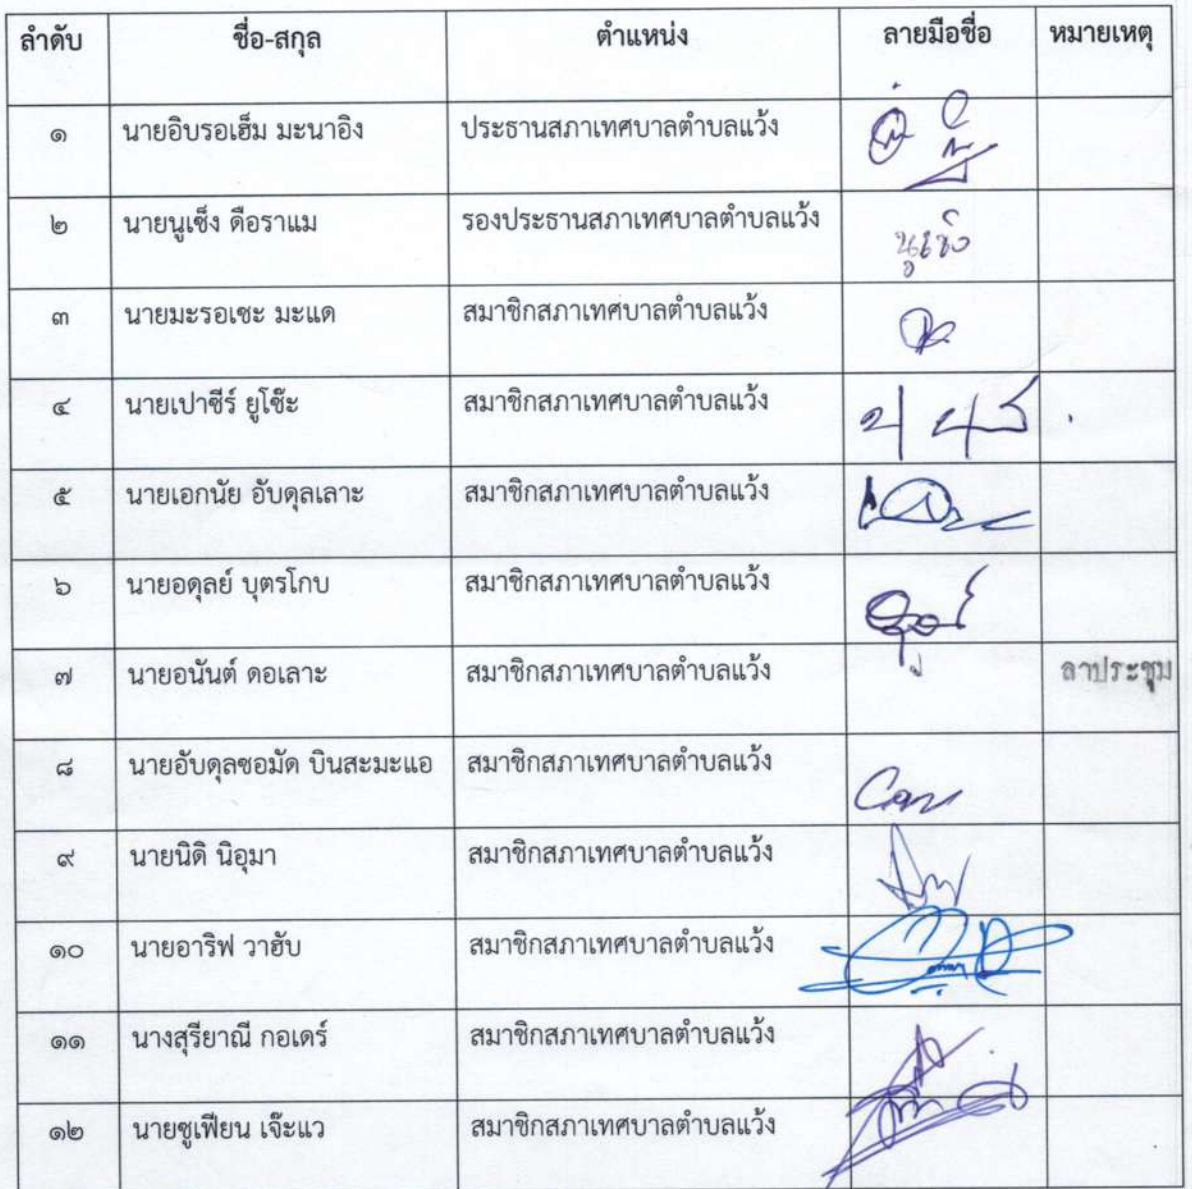 ลำดับ ชื่อ-สกุล ตำแหน่ง ลายมือชื่อ หมายเหตุ
๑ นายอิบรอเฮ็ม มะนาอิง ประธานสภาเทศบาลตำบลแว้ง
๒ นายนูเซ็ง ดือราแม รองประธานสภาเทศบาลตำบลแว้ง นูเซ็ง
๓ นายมะรอเซะ มะแด สมาชิกสภาเทศบาลตำบลแว้ง
๔ นายเปาซีร์ ยูโซ๊ะ สมาชิกสภาเทศบาลตำบลแว้ง
๕ นายเอกนัย อับดุลเลาะ สมาชิกสภาเทศบาลตำบลแว้ง
๖ นายอดุลย์ บุตรโกบ สมาชิกสภาเทศบาลตำบลแว้ง
๗ นายอนันต์ ดอเลาะ สมาชิกสภาเทศบาลตำบลแว้ง ลาประชุม
๘ นายอับดุลซอมัด บินสะมะแอ สมาชิกสภาเทศบาลตำบลแว้ง
๙ นายนิดิ นิอุมา สมาชิกสภาเทศบาลตำบลแว้ง
๑๐ นายอาริฟ วาฮับ สมาชิกสภาเทศบาลตำบลแว้ง
๑๑ นางสุรียาณี กอเดร์ สมาชิกสภาเทศบาลตำบลแว้ง
๑๒ นายซูเฟียน เจ๊ะแว สมาชิกสภาเทศบาลตำบลแว้ง